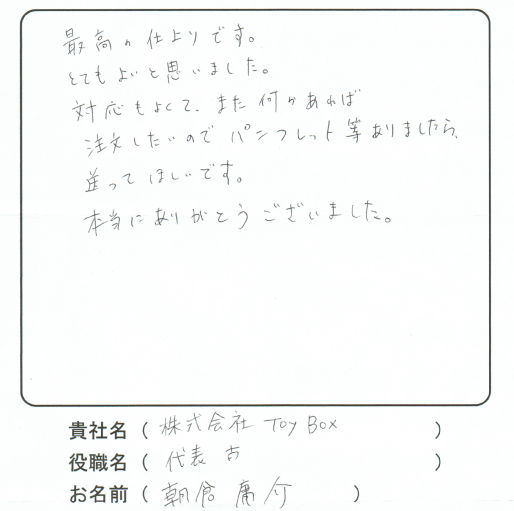 最高の仕上りです。
とてもよいと思いました。
対応もよくて、また何かあれば
注文したいのでパンフレット等ありましたら、
送ってほしいです。
本当にありがとうございました。
貴社名 ( 株式会社 Toy Box )
役職名 ( 代表 )
お名前 ( 朝倉 庸介 )